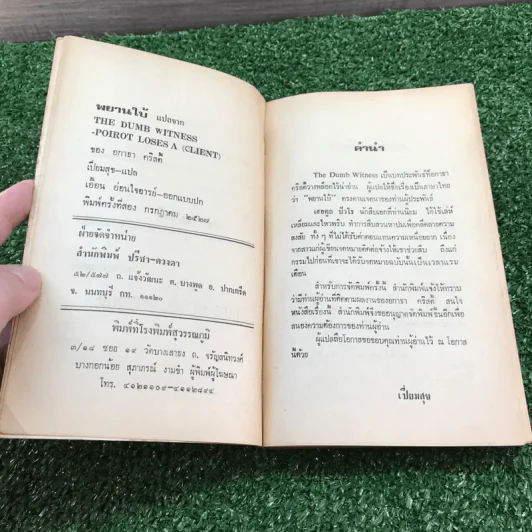 พยานใบ้ แปลจาก
THE DUMB WITNESS
-POIROT LOSES A (CLIENT)
ของ อกาธา คริสตี้
เปี่ยมสุข-แปล
เอื้อน ย่อนใจอารย์-ออกแบบปก
พิมพ์ครั้งที่สอง กรกฎาคม ๒๕๒๗
ฝ่ายจัดจำหน่าย
สำนักพิมพ์ ปรีชา-ดวงตา
๕๒/๕๗๗ ถ. แจ้งวัฒนะ ต. บางพูด อ. ปากเกร็ด
จ. นนทบุรี กท. ๑๑๑๒๐
พิมพ์ที่โรงพิมพ์สุวรรณภูมิ
๓/๑๘ ซอย ๑๙ วัดบางเสาธง ถ. จรัญสนิทวงศ์
บางกอกน้อย สุภาภรณ์ งามขำ ผู้พิมพ์ผู้โฆษณา
โทร. ๔๑๒๑๑๐๙-๔๑๑๒๘๙๔
คำนำ
The Dumb Witness เป็นบทประพันธ์ที่อกาธา
คริสตี้วางพล็อตไว้น่าอ่าน ผู้แปลให้ชื่อเรื่องเป็นภาษาไทย
ว่า "พยานใบ้" ตรงตามเจตนาของท่านผู้ประพันธ์
เฮอคูล ปัวโร นักสืบเอกที่ท่านนิยม ได้ใช้เล่ห์
เหลี่ยมและไหวพริบ ทำการสืบสวนหาปมเพื่อคลี่คลายความ
สงสัย ทั้ง ๆ ที่ไม่ได้รับค่าตอบแทนความเหนื่อยยาก เนื่อง
จากสาวแก่ผู้เขียนจดหมายติดต่อจ้างให้เขาช่วยสืบ ถึงแก่
กรรมไปก่อนที่เขาจะได้รับจดหมายฉบับนั้นเป็นเวลาแรม
เดือน
สำหรับการจัดพิมพ์ครั้งนี้ สำนักพิมพ์แจ้งให้ทราบ
ว่ามีท่านผู้อ่านที่ติดตามผลงานของอกาธา คริสตี้ สนใจ
หนังสือเรื่องนี้ สำนักพิมพ์จึงขออนุญาตจัดพิมพ์ขึ้นอีกเพื่อ
สนองความต้องการของท่านผู้อ่าน
ผู้แปลถือโอกาสขอขอบคุณท่านผู้อ่านไว้ ณ โอกาส
นี้ด้วย
เปี่ยมสุข